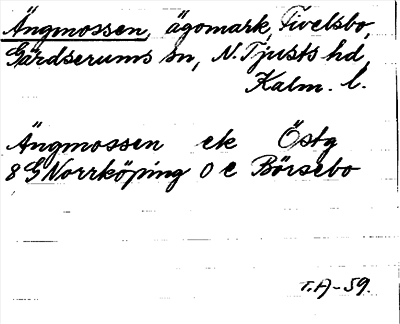 Ängmossen, ägomark, Fivelsbo,
Gärdserums sn, N. Tjusts hd,
Kalm. l.
Ängmossen ek Östg
8 G Norrköping O e Börsebo
T.A-59.